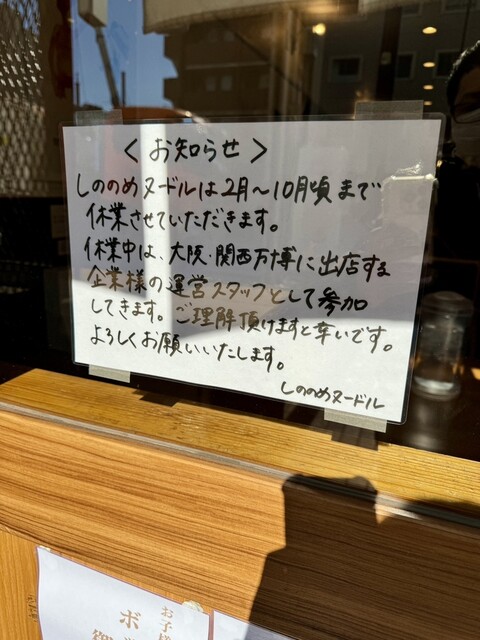 ＜お知らせ＞
しののめヌードルは2月～10月頃まで
休業させていただきます。
休業中は、大阪・関西万博に出店する
企業様の運営スタッフとして参加
してきます。ご理解頂けますと幸いです。
よろしくお願いいたします。
しののめヌードル
お子様
ボ